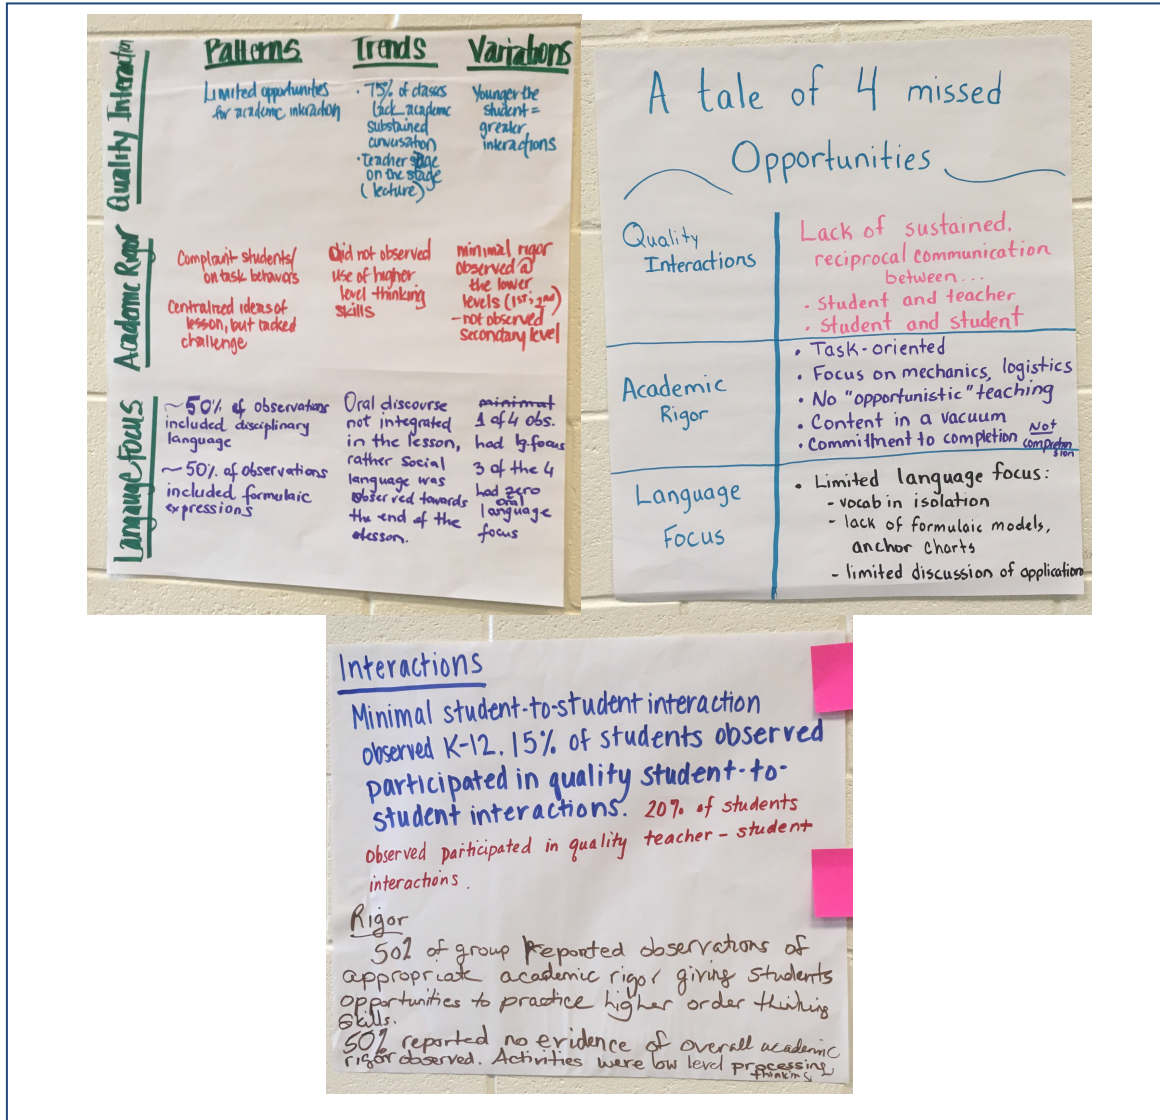 Patterns Trends Variations
Quality Interaction
Limited opportunities
for academic interaction
• 75% of classes
lack academic
substained
conversation
• Teacher sage
on the stage
(lecture)
Younger the
student =
greater
interactions
Academic Rigor
Complaint students/
on task behaviors
Centralized ideas of
lesson, but lacked
challenge
Did not observed
use of higher
level thinking
skills
minimal rigor
observed @
the lower
levels (1st, 2nd)
- not observed
Secondary level
Langauge Focus
~50% of observations
included disciplinary
language
~50% of observations
included formulaic
expressions
Oral discourse
not integrated
in the lesson,
rather social
language was
observed towards
the end of the
lesson.
minimal
1 of 4 obs.
had lg. focus
3 of the 4
had zero
oral
language
focus
A tale of 4 missed
Opportunities
Quality
Interactions
Lack of sustained,
reciprocal communication
between...
- student and teacher
• student and student
Academic
Rigor
• Task-oriented
• Focus on mechanics, logistics
• No "opportunistic" teaching
• Content in a vacuum
• Commitment to completion Not
comprehension
Language
Focus
• Limited language focus:
- vocab in isolation
- lack of formulaic models,
anchor charts
- limited discussion of application
Interactions
Minimal student-to-student interaction
observed K-12. 15% of students observed
participated in quality student-to-
student interactions. 20% of students
observed participated in quality teacher - student
interactions.
Rigor
50% of group reported observations of
appropriate academic rigor giving students
opportunities to practice higher order thinking
skills.
50% reported no evidence of overall academic
rigor observed. Activities were low level processing
thinking